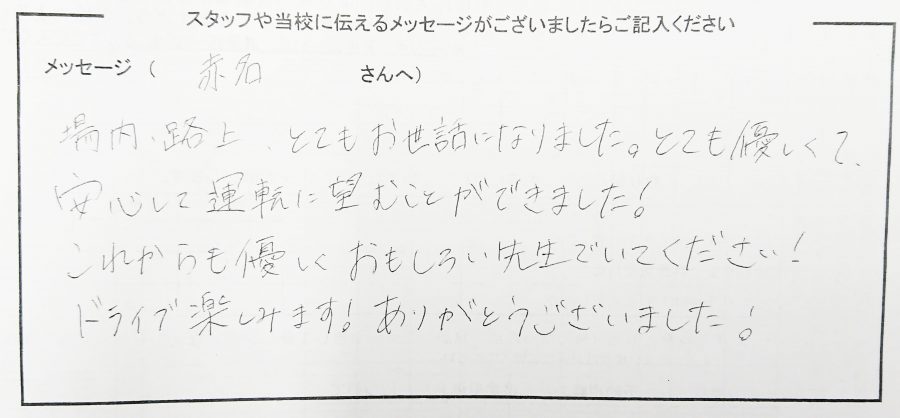 スタッフや当校に伝えるメッセージがございましたらご記入ください
メッセージ ( 赤名 さんへ)
場内、路上、とてもお世話になりました。とても優しくて、
安心して運転に望むことができました!
これからも優しくおもしろい先生でいてください!
ドライブ楽しみます!ありがとうございました!